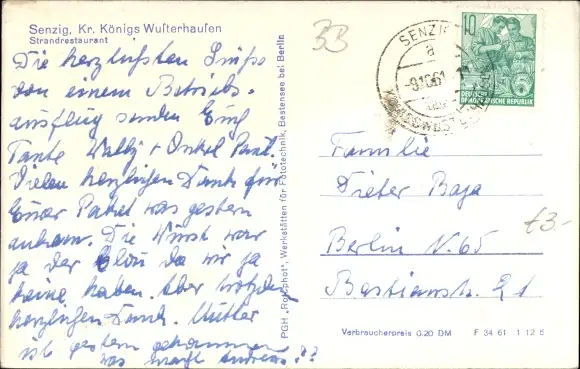 Senzig, Kr. Königs Wusterhausen
Strandrestaurant
Die herzlichsten Grüße
von einem Betriebs-
ausflug senden Euch
Tante Wally + Onkel Paul.
Vielen herzlichen Dank für
Euer Paket was gestern
ankam. Die Wurst war
ja der Clou da wir ja
keine haben. Aber trotzdem
herzlichen Dank. Mutter
ist gestern gekommen
was macht Andreas??
PGH „Rotophot", Werkstätten für Fototechnik, Bestensee bei Berlin
33
SENZIG
a
-9.10.61
10
DEUTSCHE
DEMOKRATISCHE REPUBLIK
Familie
Dieter Baja
Berlin N. 65
Bastianstr. 21
£3.-
Verbraucherpreis 0.20 DM F 34 61 1 12 6